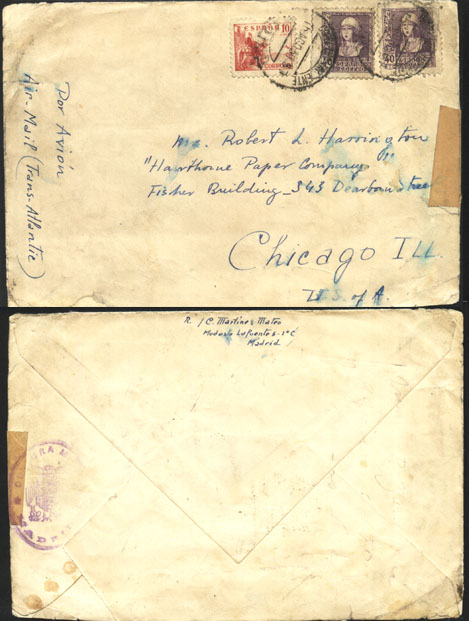 ESPAÑA 10
CORREOS
40
Por Avión
Air-Mail (Trans-Atlantic)
Mr. Robert L. Harrington
"Hawthorne Paper Company"
Fisher Building_343 Dearborn Street
Chicago Ill.
U.S. of A.
R. / C. Martínez Mateo
Modesto Lafuente 5-2º C
Madrid